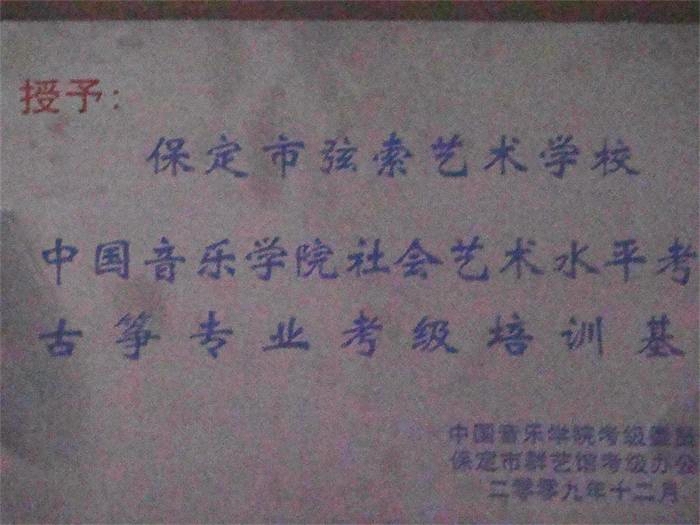 授予:
保定市弦索艺术学校
中国音乐学院社会艺术水平考
古筝专业考级培训基
中国音乐学院考级委
保定市群艺馆考级办公
二零零九年十二月